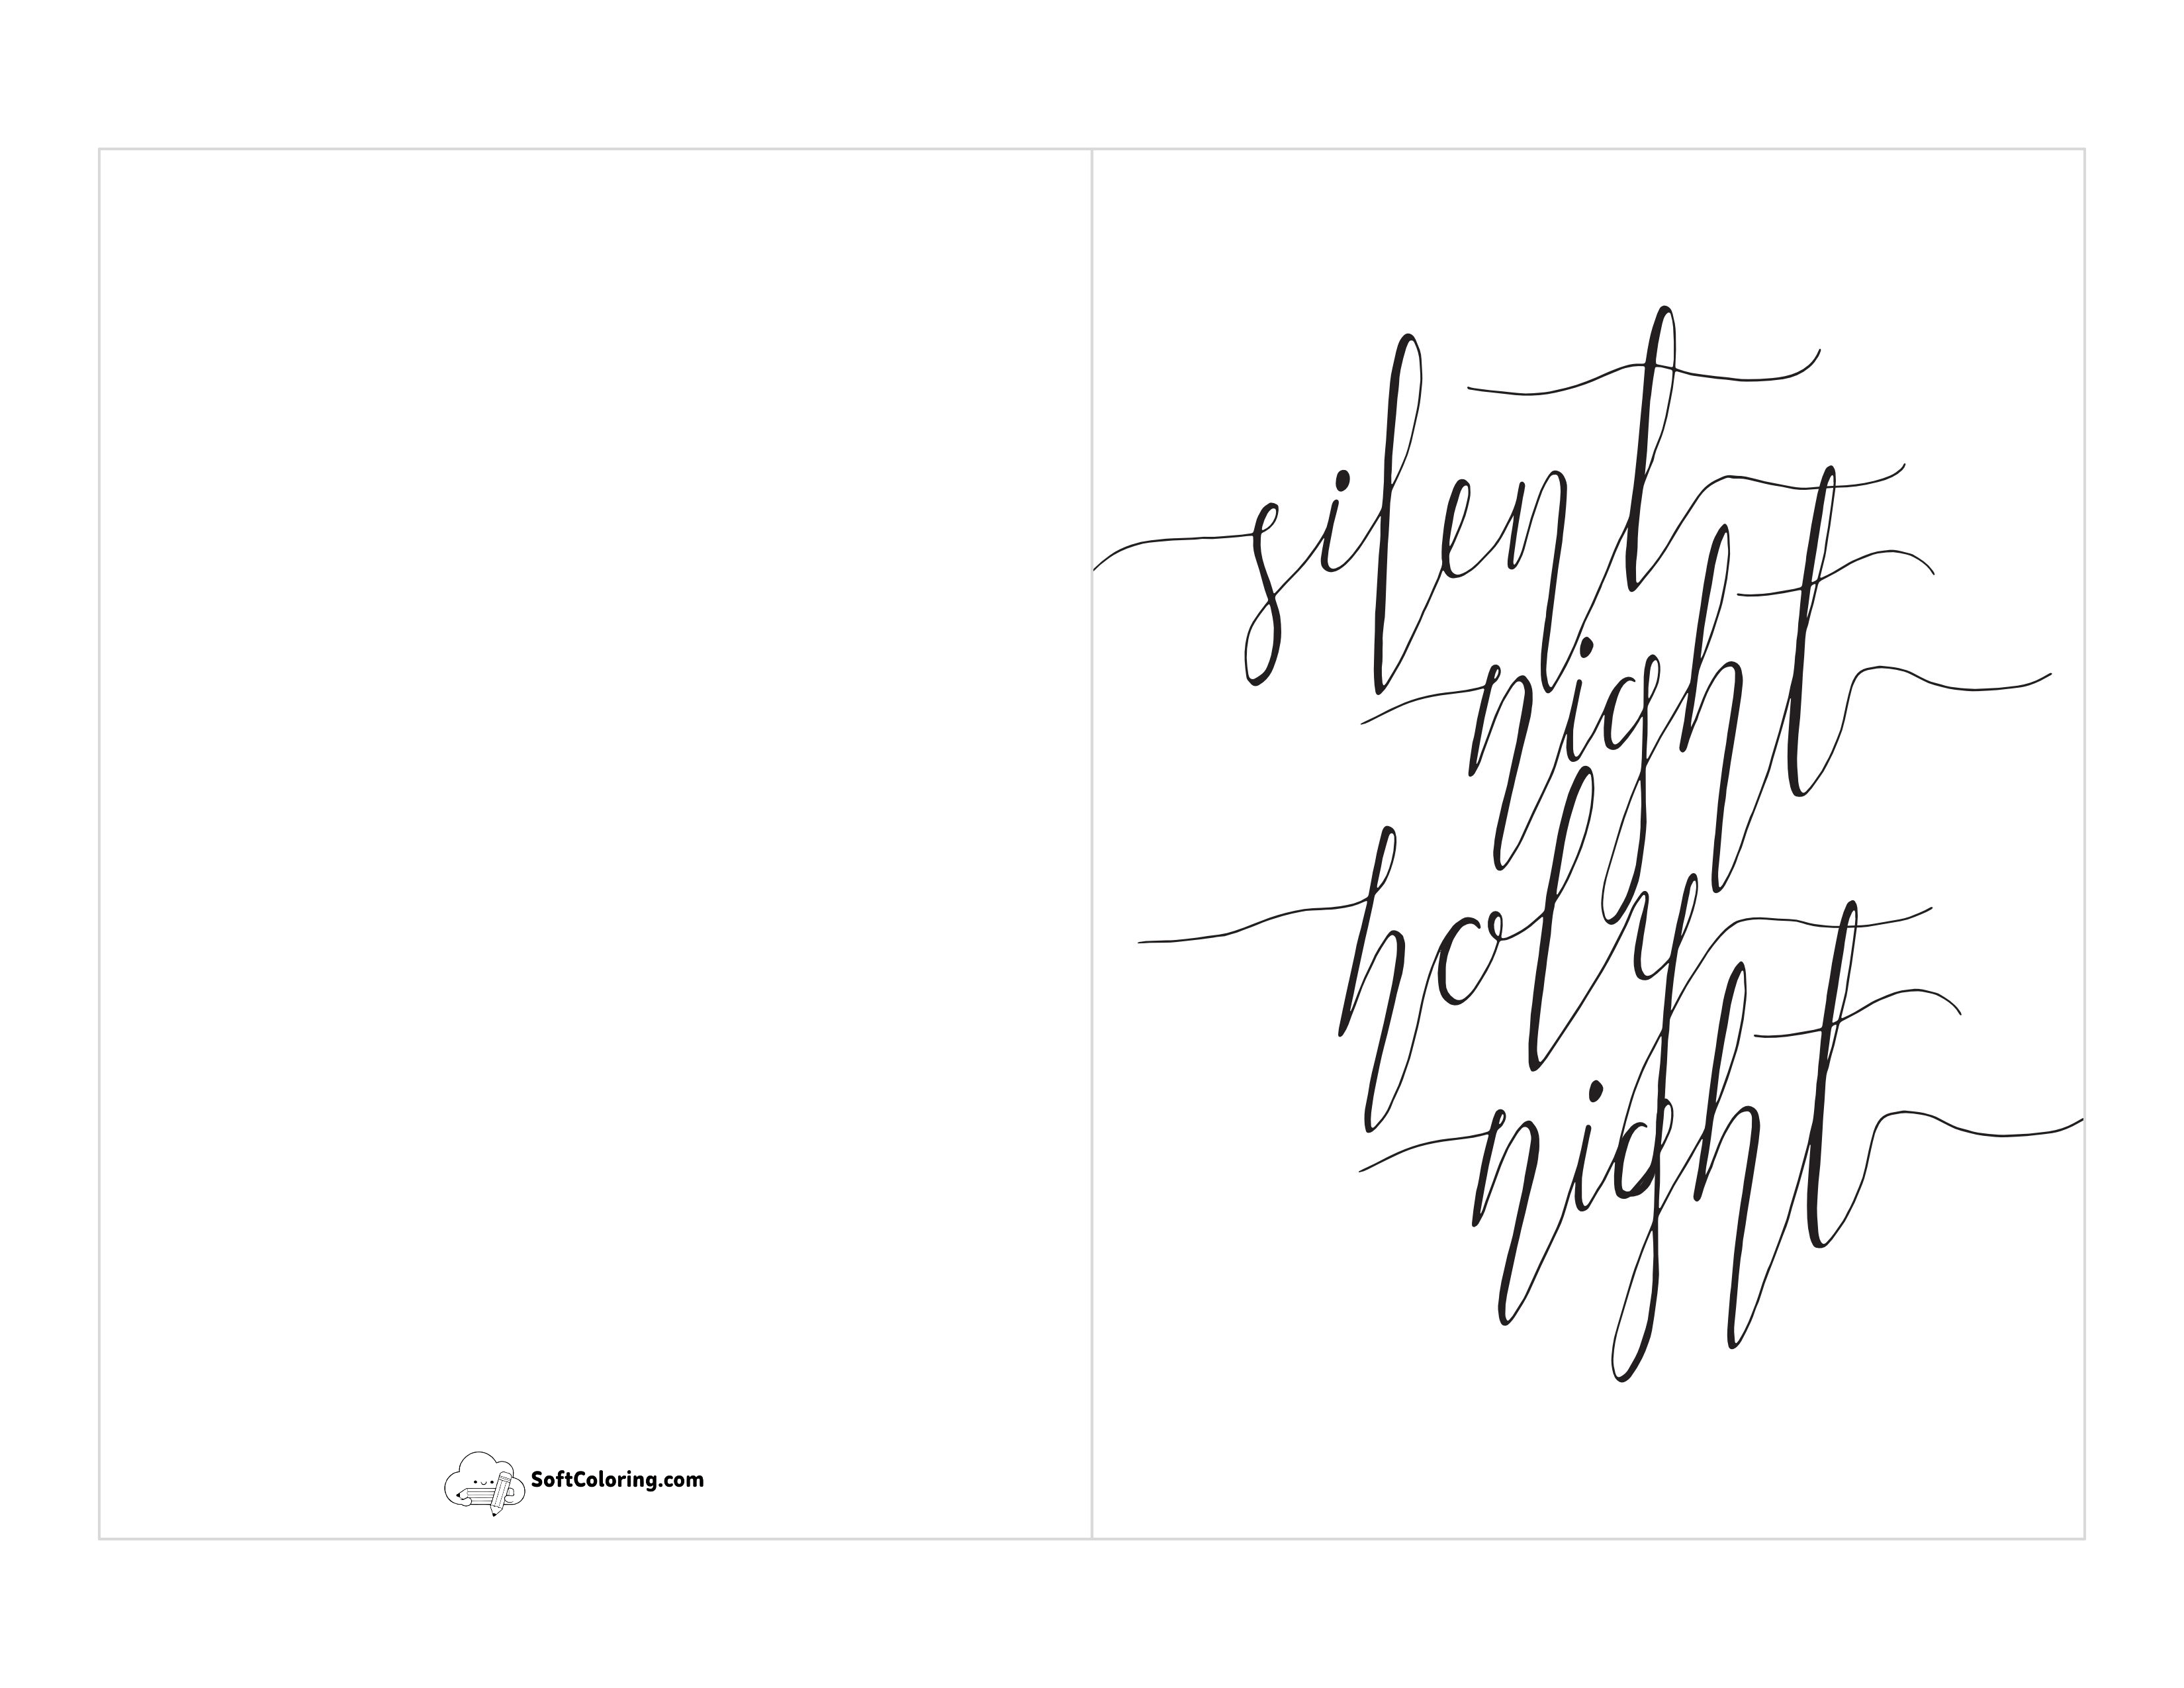 silent
night
holy
night
SoftColoring.com